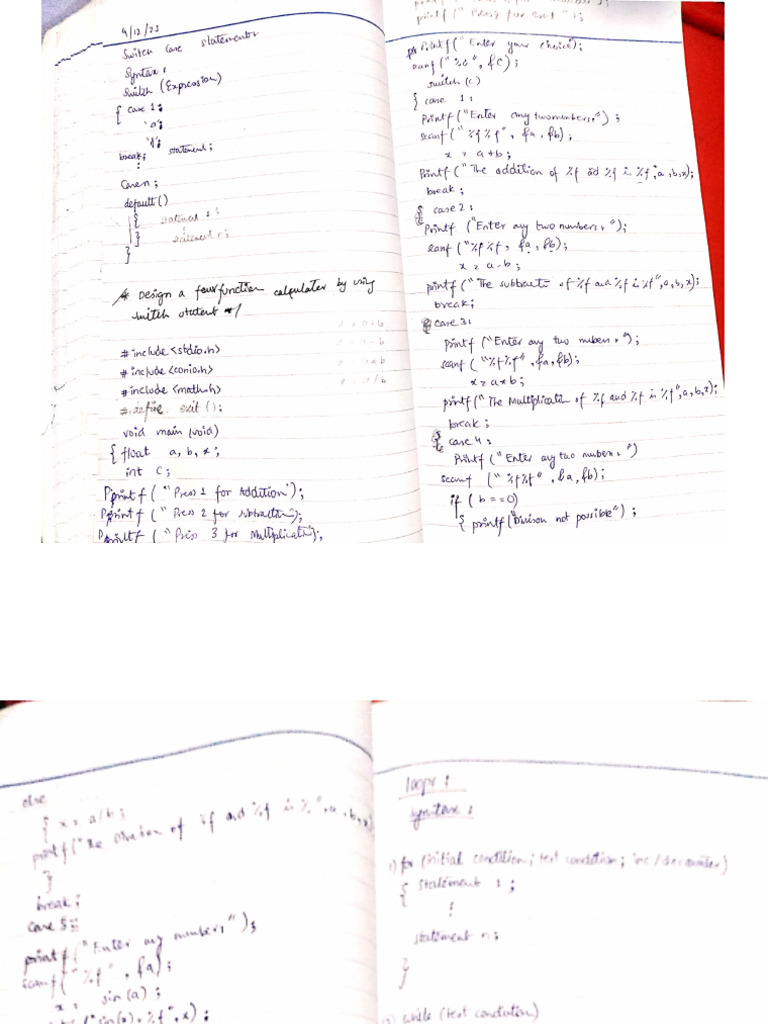 4/12/23
Switch Case statements
Syntax:
Switch (Expression)
{ case 1:
'a';
break; statement;
Case n;
default()
{ statement 1;
} statement n;
}
/* Design a fourfunction calculater by using
switch statent */
#include <stdio.h>
#include <conio.h>
#include <math.h>
#define exit();
void main (void)
{ float a, b, x;
int C;
Pprintf ( "Press 1 for Addition");
Pprintf ( "Press 2 for subtraction);
Pprintf ( "Press 3 for Multiplicati);
printf (" Press for exit ");
Printf(" Enter your choice);
scanf("%d", &C);
switch (c)
{ case 1:
Printf("Enter any two numbers,") ;
scanf ("%f%f", &a, &b);
x = a+b;
Printf("The addition of %f ad %f is %f", a, b, x);
break;
case 2:
Printf ("Enter any two numbers,");
canf ("%f%f, &a, &b);
x = a-b;
printf("The subtractio of %f and %f is %f", a, b, x);
break;
case 3:
Printf ("Enter any two nubers,");
scanf ("%f%f", &a, &b);
x = axb;
printf ("The Multiplication of %f and %f is %f", a, b, x);
break;
case 4:
Printf ("Enter any two nubers,")
scanf ("%f%f", &a, &b);
if (b==0)
{ printf("Divison not possible") ;
else
{ x = a/b;
printf("The Division of %f and %f is %", a, b, x)
}
break;
Case 5:
printf("Enter any numbers,");
scanf ("%f", &a);
x = sin(a);
("sin(x), %f", x);
loops :
syntax :
1) for (initial condition; test condition; inc/decounter)
{ statement 1 ;
statement n;
}
2) while (test condition)